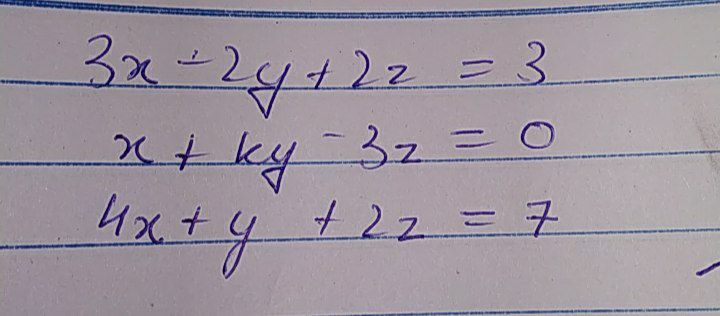 3x - 2y + 2z = 3
x + ky - 3z = 0
4x + y + 2z = 7